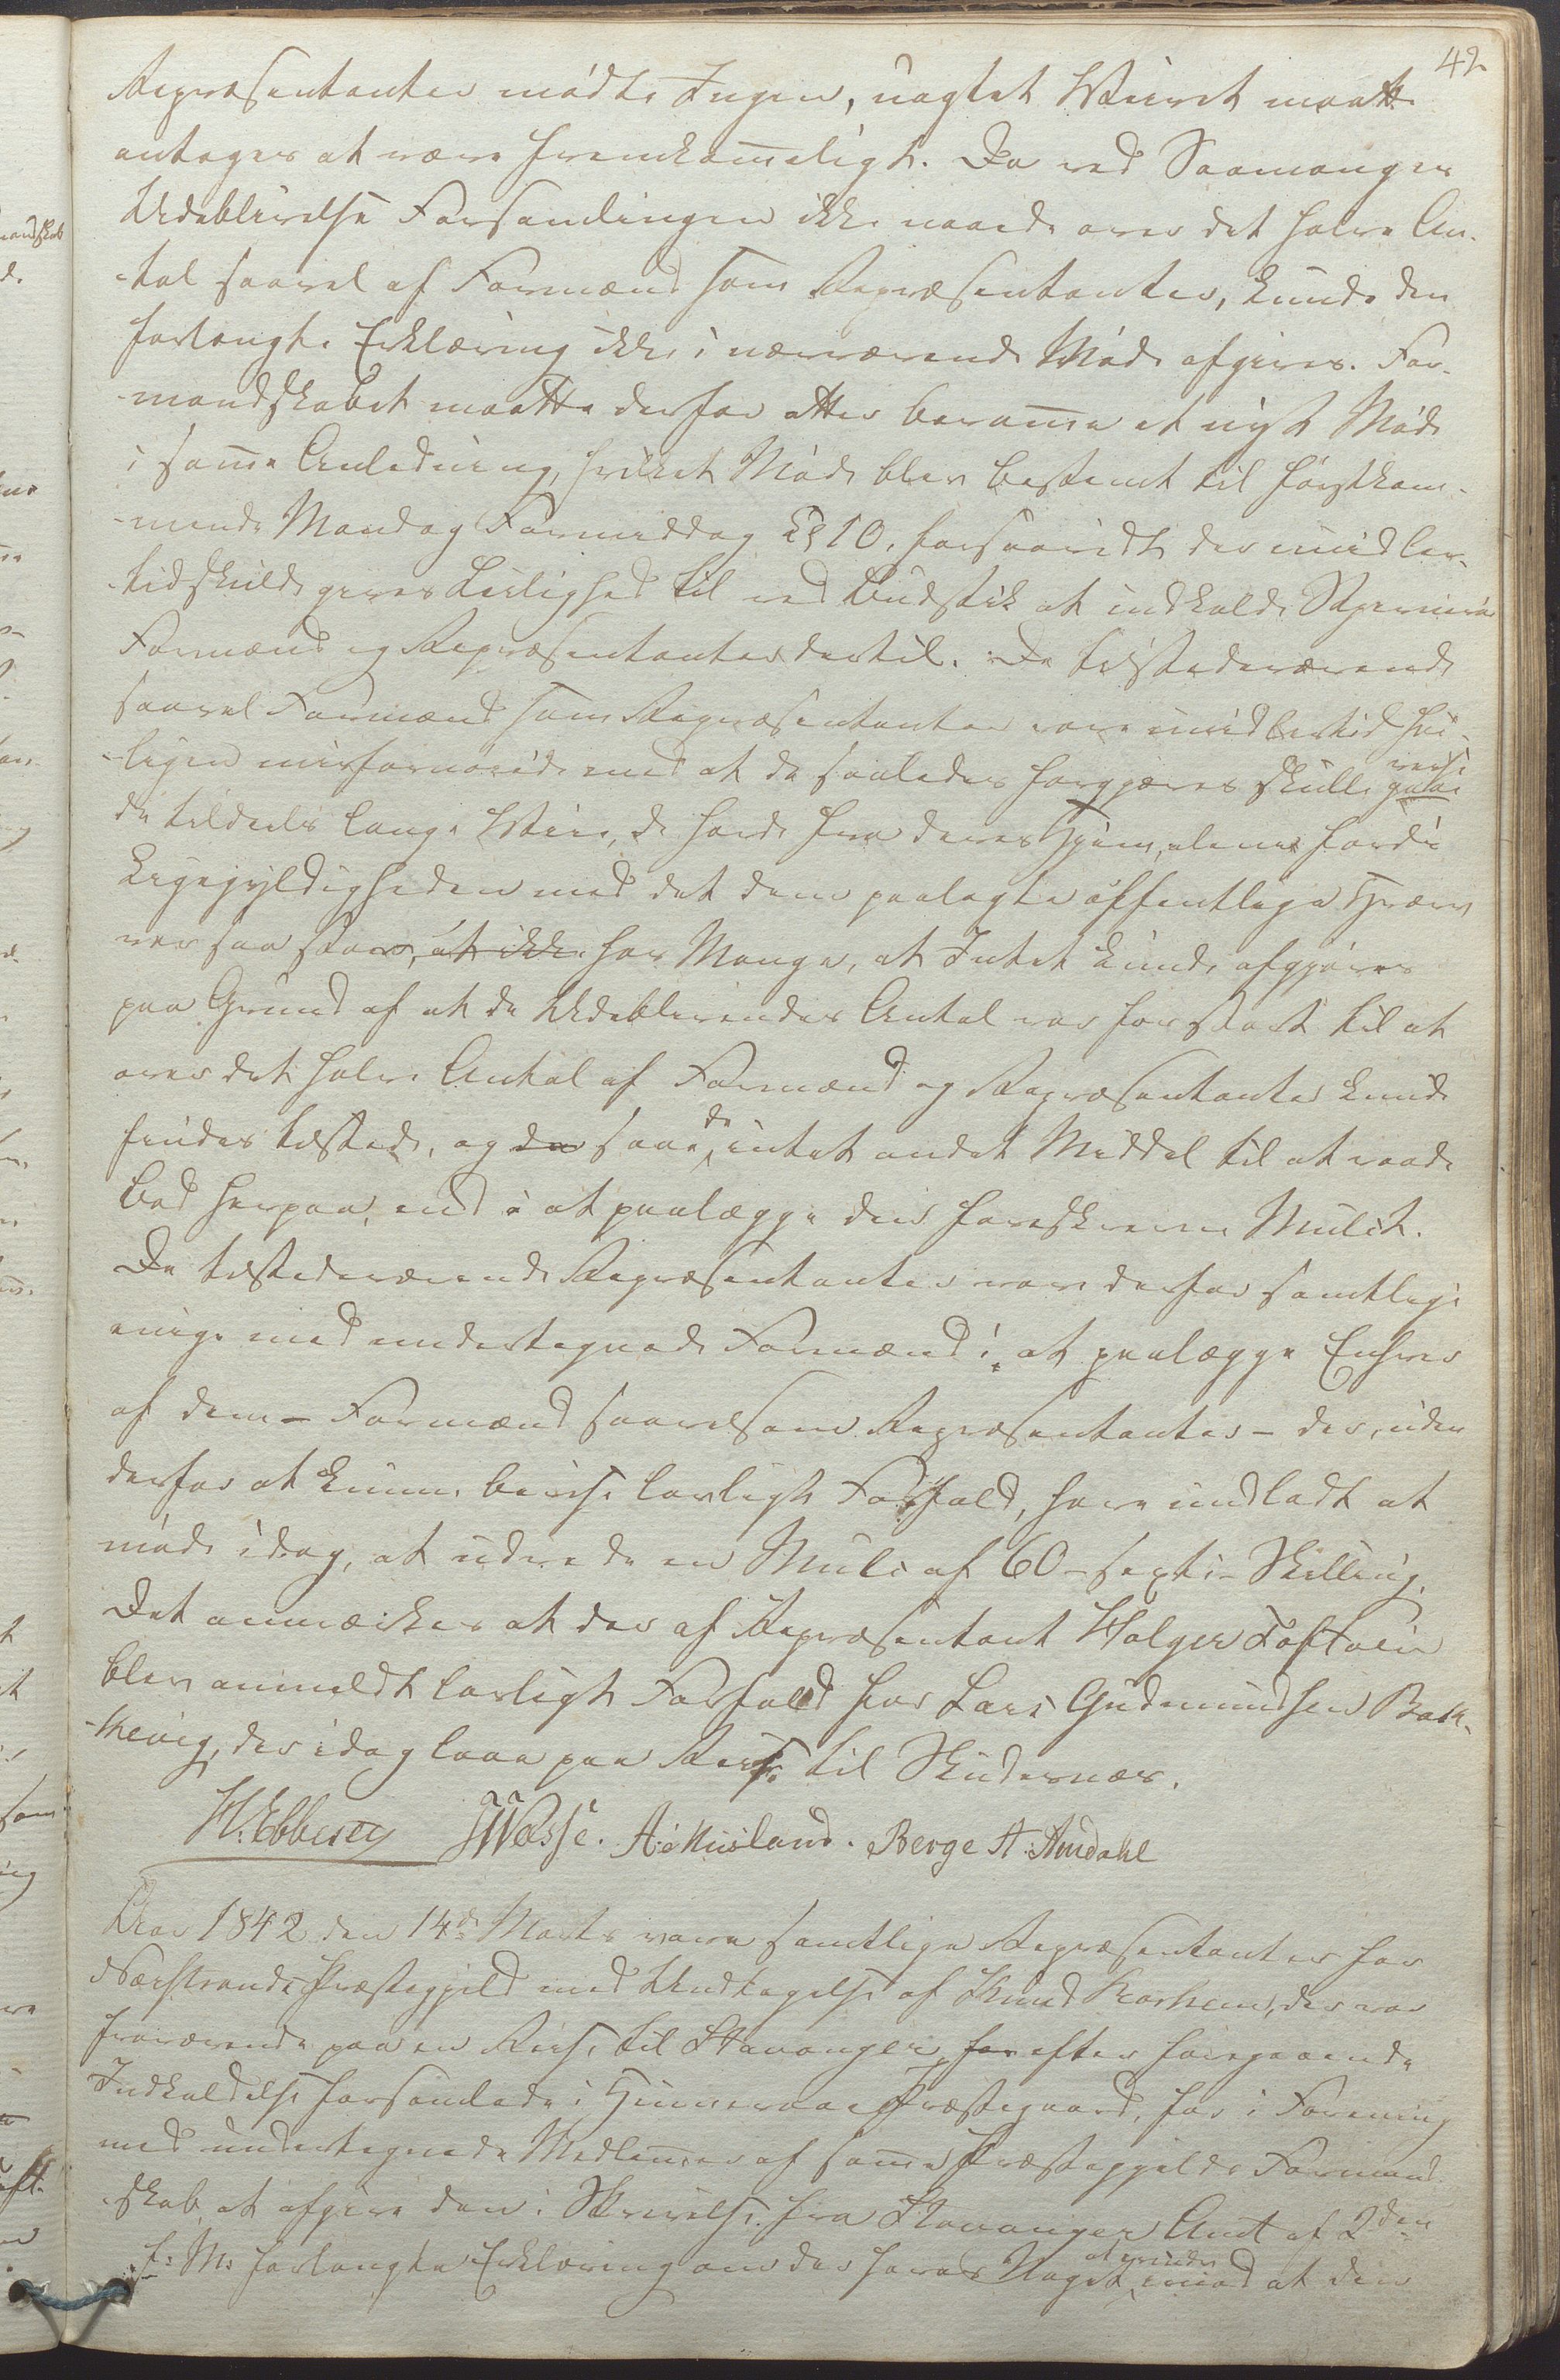 42
Repræsentanter mødte Ingen, uagtet Veiret maatte
antages at være fremkom̅eligt. Da ved Saamanges
Udeblivelse Forsamlingen ikke naaede over det halve An-
-tal saavel af Formænd som Repræsentanter, kunde den
forlangte Erklæring ikke i nærværende Møde afgives. For-
-mandskabet maatte derfor atter beram̅e et nyt Møde
i sam̅e Anledning, hvilket Møde blev bestemt til førstkom-
-mende Mandag Formiddag Kl 10, forsaavidt der imidler-
-tid skulde gives Leilighed til ved Budstik at indkalde
Formænd og Repræsentanter dertil. De tilstedeværende
saavel Formænd som Repræsentanter vare imidlertid høi-
-ligen misfornøiede med at de saaledes forgjæves skulle reise
de tildeels lange Veie, de havde fra deres Hjem, alene fordi
Ligegyldigheden med det dem paalagte offentlige Hverv
var saa stor, at ikke hos Mange, at Intet kunde afgjøres
paa Grund af at de Udeblivendes Antal var for stort til at
over det halve Antal af Formænd og Repræsentanter kunde
findes tilstede, og da saae de intet andet Middel til at raade
Bod herpaa, end i at paalægge den foreskrevne Mulct.
De tilstedeværende Repræsentanter vare derfor samtlige
enige med undertegnede Formænd i at paalægge Enhver
af dem – Formænd saavelsom Repræsentanter – der, uden
derfor at kunne bevise lovligt Forfald, have undladt at
møde idag, at udrede en Mulct af 60 – sexti – Skilling.
Det anmærkes at der af Repræsentant Holger Toftøen
blev anmeldt lovligt Forfald for Lars Gudmundsen Bok-
-kevig, der idag laae paa Reise til Skudesnæs.
H. Ebbesen JWasse. A: Ai Huisland. Berge A: Amdahl
Aar 1842 den 14de Marts vare samtlige Repræsentanter for
Nærstrands Præstegjeld med Undtagelse af Knud Børkem, der var
fraværende paa en Reise til Stavanger, for efter foregaaende
Indkaldelse forsamlede i Hinneraae Præstegaard, for i Forening
med undertegnede Medlem̅er af sam̅e Præstegjelds Formand-
-skab, at afgive den i Skrivelse fra Stavanger Amt af 2den
f: M: forlangte Erklæring om der haves Noget at erindre imod at den